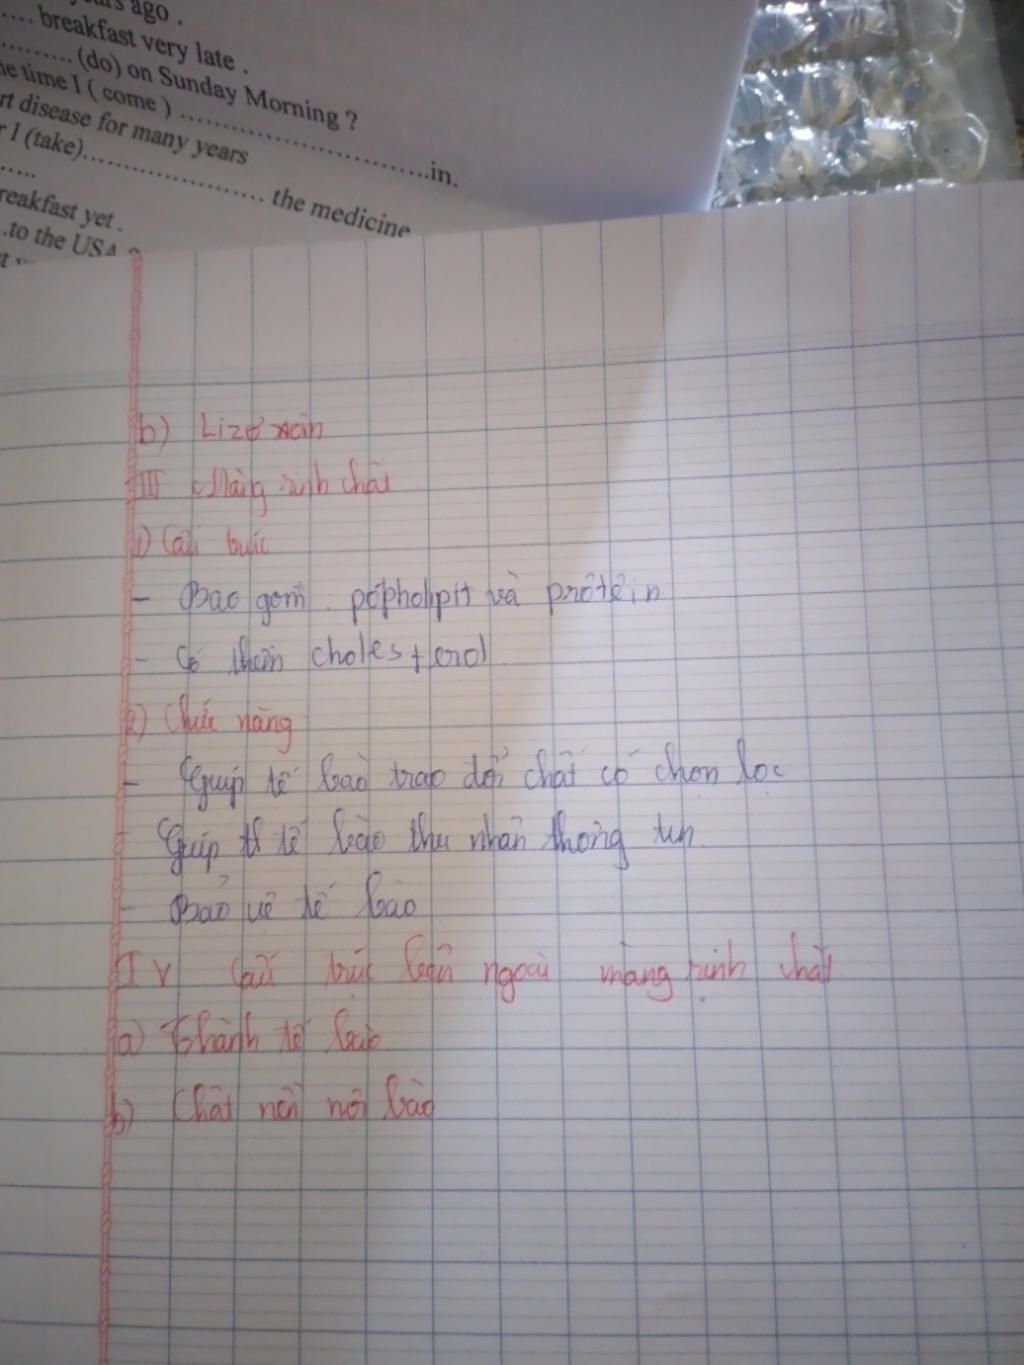 ago .
.... breakfast very late .
......... (do) on Sunday Morning ?
time I ( come ) ..............................in.
disease for many years
I (take)..................... the medicine
.....
breakfast yet .
..to the USA ?
b) Lizơ xôm
III Màng sinh chất
1) Cấu trúc
- Bao gồm pốpholipit và prôtêin
- Có thêm cholesterol
2) Chức năng
- Giúp tế bào trao đổi chất có chọn lọc
- Giúp tế bào thu nhận thông tin
- Bảo vệ tế bào
IV Cấu trúc bên ngoài màng sinh chất
a) Thành tế bào
b) Chất nền nội bào